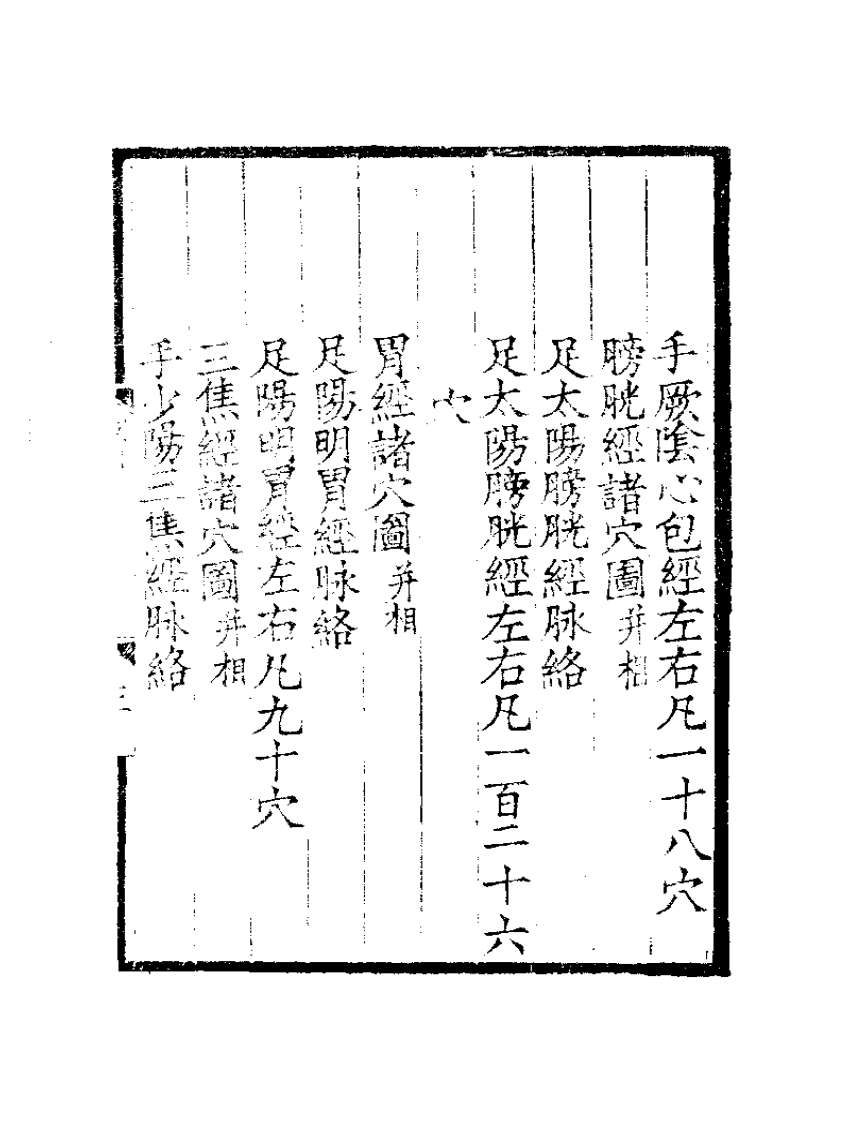 手厥陰心包經左右凡一十八穴
膀胱經諸穴圖并相
足太陽膀胱經脉絡
足太陽膀胱經左右凡一百二十六
穴
胃經諸穴圖并相
足陽明胃經脉絡
足陽明胃經左右凡九十穴
三焦經諸穴圖并相
手少陽三焦經脉絡